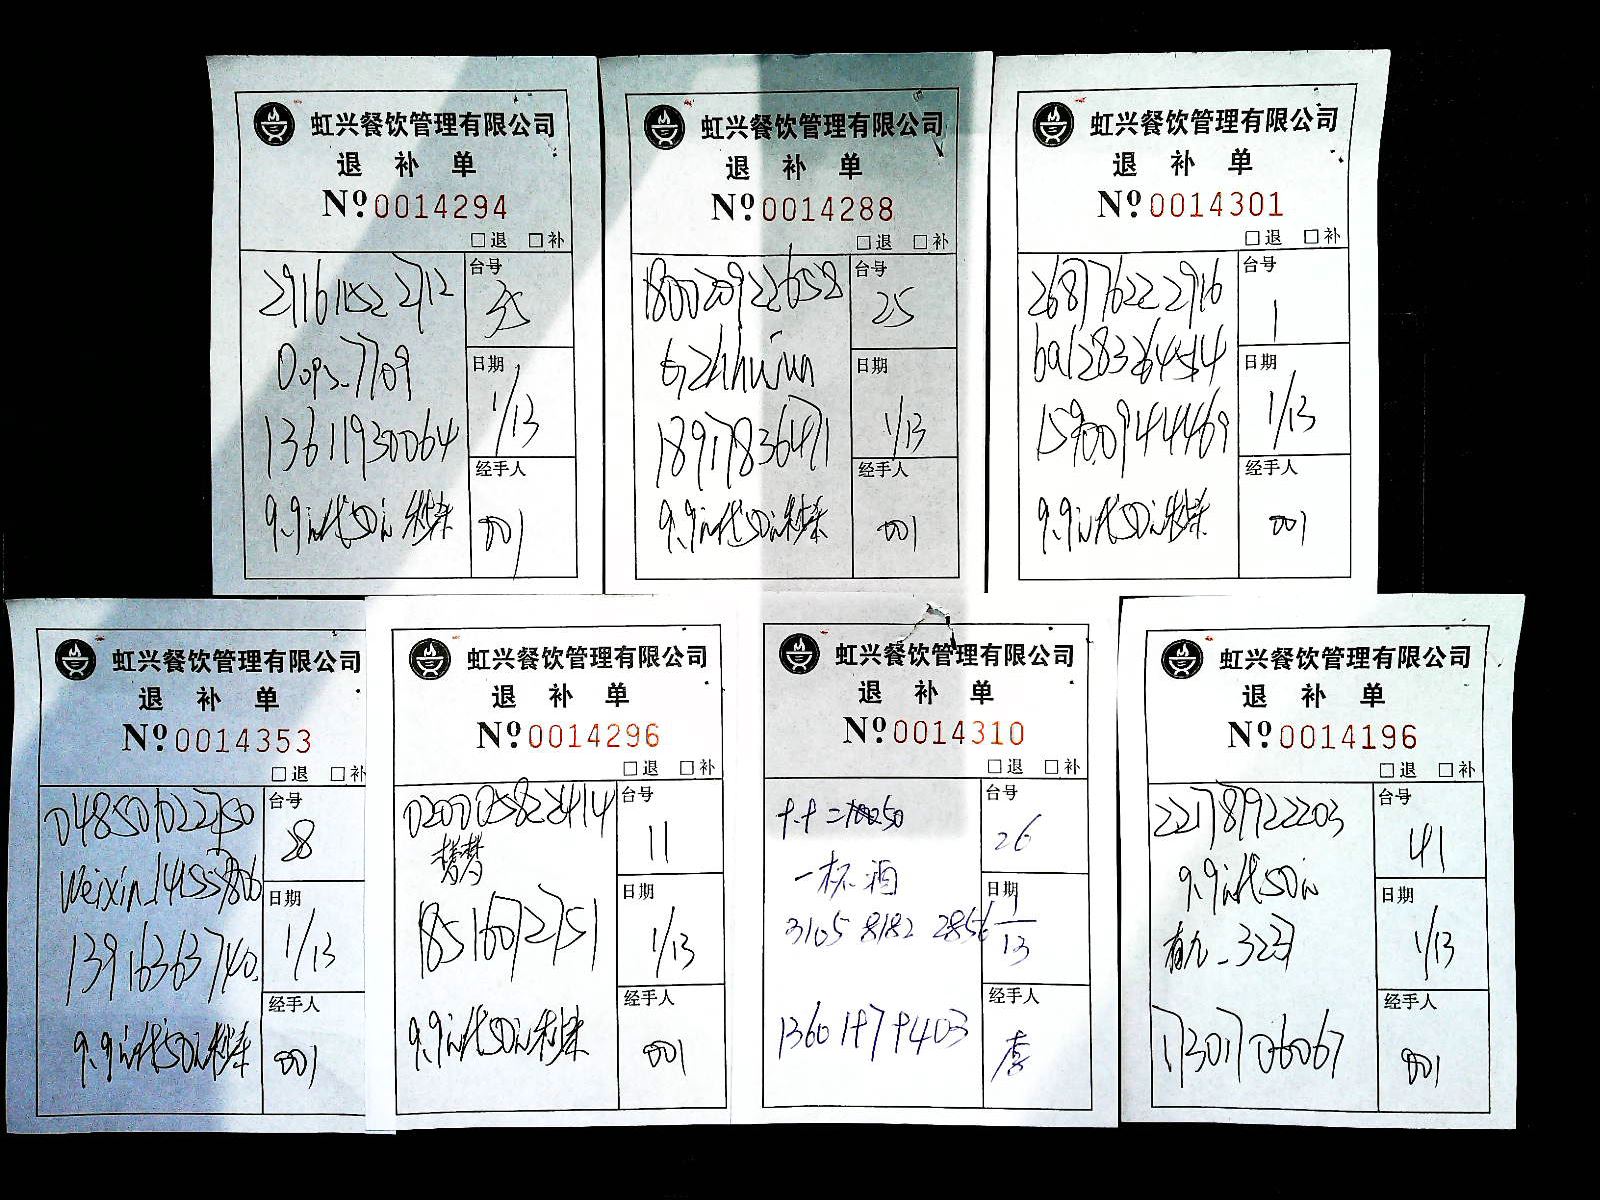 虹兴餐饮管理有限公司
退 补 单
Nº 0014294
□退 □补
29161152 2712
台号
35
Oops_7709
日期
1/13
13611930064
经手人
001
9.9元代50元 秒杀
虹兴餐饮管理有限公司
退 补 单
Nº 0014288
□退 □补
180020922658
台号
25
日期
1/13
18917836471
经手人
001
9.9元代50元秒杀
虹兴餐饮管理有限公司
退 补 单
Nº 0014301
□退 □补
268776222916
台号
1
日期
1/13
15900944469
经手人
001
9.9元代50元秒杀
虹兴餐饮管理有限公司
退 补 单
Nº 0014353
□退 □补
048501022750
台号
28
日期
1/13
13916363740
经手人
001
9.9元代50元秒杀
虹兴餐饮管理有限公司
退 补 单
Nº 0014296
□退 □补
020005822414
台号
11
日期
1/13
18516092751
经手人
001
9.9元代50元秒杀
虹兴餐饮管理有限公司
退 补 单
Nº 0014310
□退 □补
台号
26
一杯酒
日期
1/13
3105 8182 2856
经手人
虹兴餐饮管理有限公司
退 补 单
Nº 0014196
□退 □补
221789922203
台号
41
9.9元代50元
日期
1/13
17301706067
经手人
001